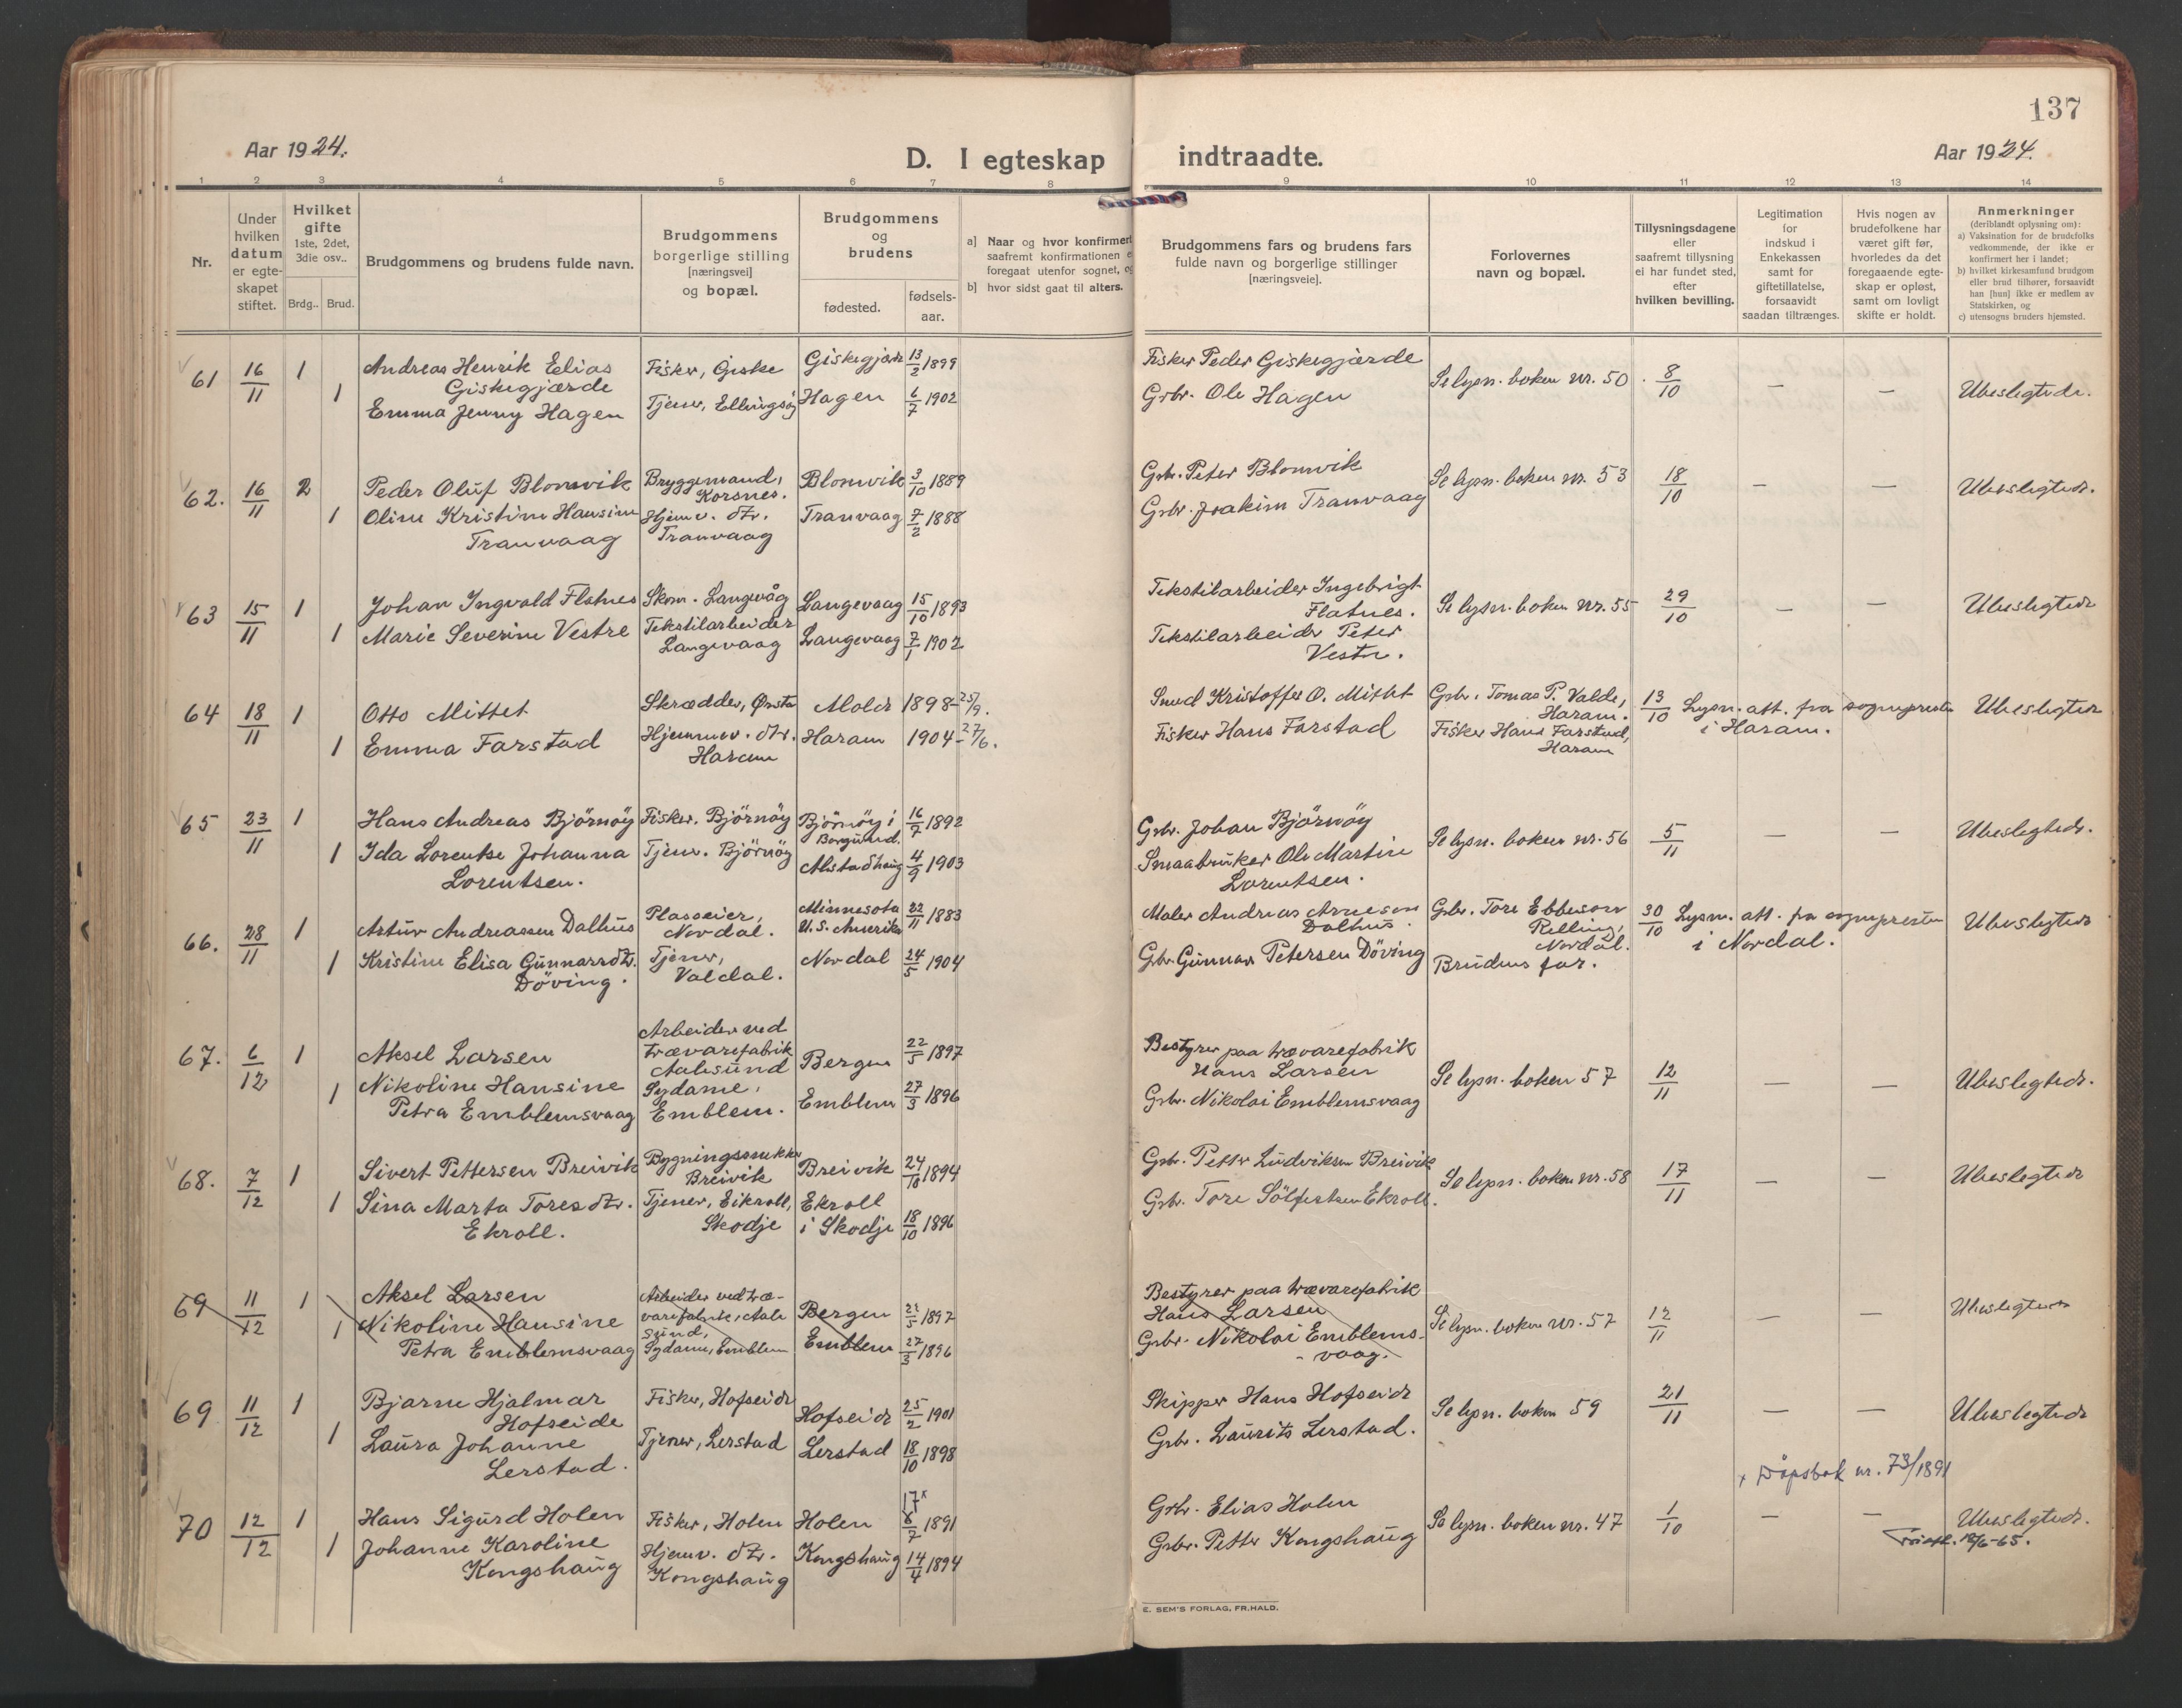 137
Aar 1924.
D. I egteskap indtraadte.
Aar 1924.
1 2 3 4 5 6 7 8 9 10 11 12 13 14
Nr.
Under
hvilken
datum
er egte-
skapet
stiftet.
Hvilket
gifte
1ste, 2det,
3die osv..
Brdg..
Brud.
Brudgommens og brudens fulde navn.
Brudgommens
borgerlige stilling
[næringsvei]
og bopæl.
Brudgommens
og
brudens
fødested.
fødsels-
aar.
a] Naar og hvor konfirmert
saafremt konfirmationen e
foregaat utenfor sognet, og
b] hvor sidst gaat til alters.
Brudgommens fars og brudens fars
fulde navn og borgerlige stillinger
[næringsveie].
Forlovernes
navn og bopæl.
Tillysningsdagene
eller
saafremt tillysning
ei har fundet sted,
efter
hvilken bevilling.
Legitimation
for
indskud i
Enkekassen
samt for
giftetillatelse,
forsaavidt
saadan tiltrænges.
Hvis nogen av
brudefolkene har
været gift før,
hvorledes da det
foregaaende egte-
skap er opløst,
samt om lovligt
skifte er holdt.
Anmerkninger
(deriblandt oplysning om):
a) Vaksination for de brudefolks
vedkommende, der ikke er
konfirmert her i landet;
b) hvilket kirkesamfund brudgom
eller brud tilhører, forsaavidt
han [hun] ikke er medlem av
Statskirken, og
c) utensogns bruders hjemsted.
61 16/11 1 Andreas Henrik Elias Fisker, Giske Giskegjærde 13/2 1899 Fisker Peder Giskegjærde Se lysn. boken nr. 50. 8/10 — — Ubeslegtede.
Giskegjærde
1 Emma Jenny Hagen Tjener, Ellingsöy Hagen 6/7 1902 Grbr. Ole Hagen
62. 16/11 2 Peder Oluf Blomvik Bryggemand, Blomvik 3/10 1889 Grbr. Peter Blomvik Se lysn. boken nr. 53 18/10 — — Ubeslegtede.
Korsnes.
1 Oline Kristine Hansine Hjemv. dtr. Tranvaag 7/2 1888 Grbr. Joakim Tranvaag
Tranvaag Tranvaag
63 15/11 1 Johan Ingvald Flatnes Skom. Langvåg Langevaag 15/10 1893 Tekstilarbeider Ingebrigt Se lysn. boken nr. 55 29/10 — — Ubeslegtede
Flatnes.
1 Marie Severine Vestre Tekstilarbeider Langevaag 7/1 1902 Tekstilarbeider Peter
Langevaag Vestre.
64 18/11 1 Otto Mittet Skrædder, Ørsta Molde 1898-25/9. Smed Kristoffer O. Mittet Grbr. Tomas P. Valde, 13/10 Lysn. att. fra sognepresten Ubeslegtede
Haram. i Haram.
1 Emma Farstad Hjemmev. dtr. Haram 1904-27/6. Fisker Hans Farstad Fisker Hans Farstad,
Haram Haram
65 23/11 1 Hans Andreas Björnöy Fisker. Björnöy Björnöy i 16/7 1892 Grbr. Johan Björnöy Se lysn. boken nr. 56 5/11 — — Ubeslegtede.
Borgund.
1 Ida Lorentse Johanna Tjener. Björnöy Alstadhaug 4/9 1903 Smaabruker Ole Martin
Lorentsen. Lorentsen.
66. 28/11 1 Artur Andreassen Dalhus Plasseier, Minnesota 22/11 1883 Maler Andreas Arneson Grbr. Tore Ebbeson 30/10 Lysn. att. fra sognepresten Ubeslegtede
Nordal. U. S. Amerika Dalhus. Relling, i Nordal.
Nordal.
1 Kristine Elisa Gunnarsdtr. Tjener, Nordal 24/5 1904 Grbr. Gunnar Petersen Döving Brudens far.
Döving. Valdal.
67. 6/12 1 Aksel Larsen Arbeider ved Bergen 22/5 1897 Bestyrer paa trævarefabrik Se lysn. boken 57 12/11 — — Ubeslegtede.
trævarefabrik Hans Larsen
Aalesund
1 Nikoline Hansine Sydame, Emblem 27/3 1896 Grbr. Nikolai Emblemsvaag
Petra Emblemsvaag Emblem.
68. 7/12 1 Sivert Pettersen Breivik Bygningssnekker Breivik 24/10 1894 Grbr. Petter Ludviksen Breivik Se lysn. boken nr. 58 17/11 — — Ubeslegtede
Breivik
1 Sina Marta Tores dtr. Tjener, Eikroll, Ekroll Grbr. Tore Sölfestsen Ekroll.
Ekroll. Skodje i Skodje 18/10 1896
69 11/12 1 Aksel Larsen Arbeider ved træ- Bergen 22/5 1897 Bestyrer paa trævarefabrik Se lysn. boken nr. 57 12/11 — — Ubeslegtede
varefabrik, Aale Hans Larsen
sund,
1 Nikoline Hansine Sydame, Emblem Emblem 27/3 1896 Grbr. Nikolai Emblems-
Petra Emblemsvaag - vaag.
69 11/12 1 Bjarne Hjalmar Fisker, Hofseide Hofseide 25/2 1901 Skipper Hans Hofseide Se lysn. boken 59 21/11 — — Ubeslegtede
Hofseide
1 Laura Johanne Tjener, Lerstad Lerstad 18/10 1898 Grbr. Laurits Lerstad.
Lerstad.
x Döpsbok nr. 73/1891
70 12/12 1 Hans Sigurd Holen Fisker, Holen Holen 17x 6/7 1891 Grbr. Elias Holen Se lysn. boken nr. 47 1/10 — — Ubeslegtede.
1 Johanne Karoline Hjemv. dtr. Kongshaug 14/4 1894 Grbr. Petter Kongshaug
Kongshaug Kongshaug
E. SEM'S FORLAG, FR.HALD.